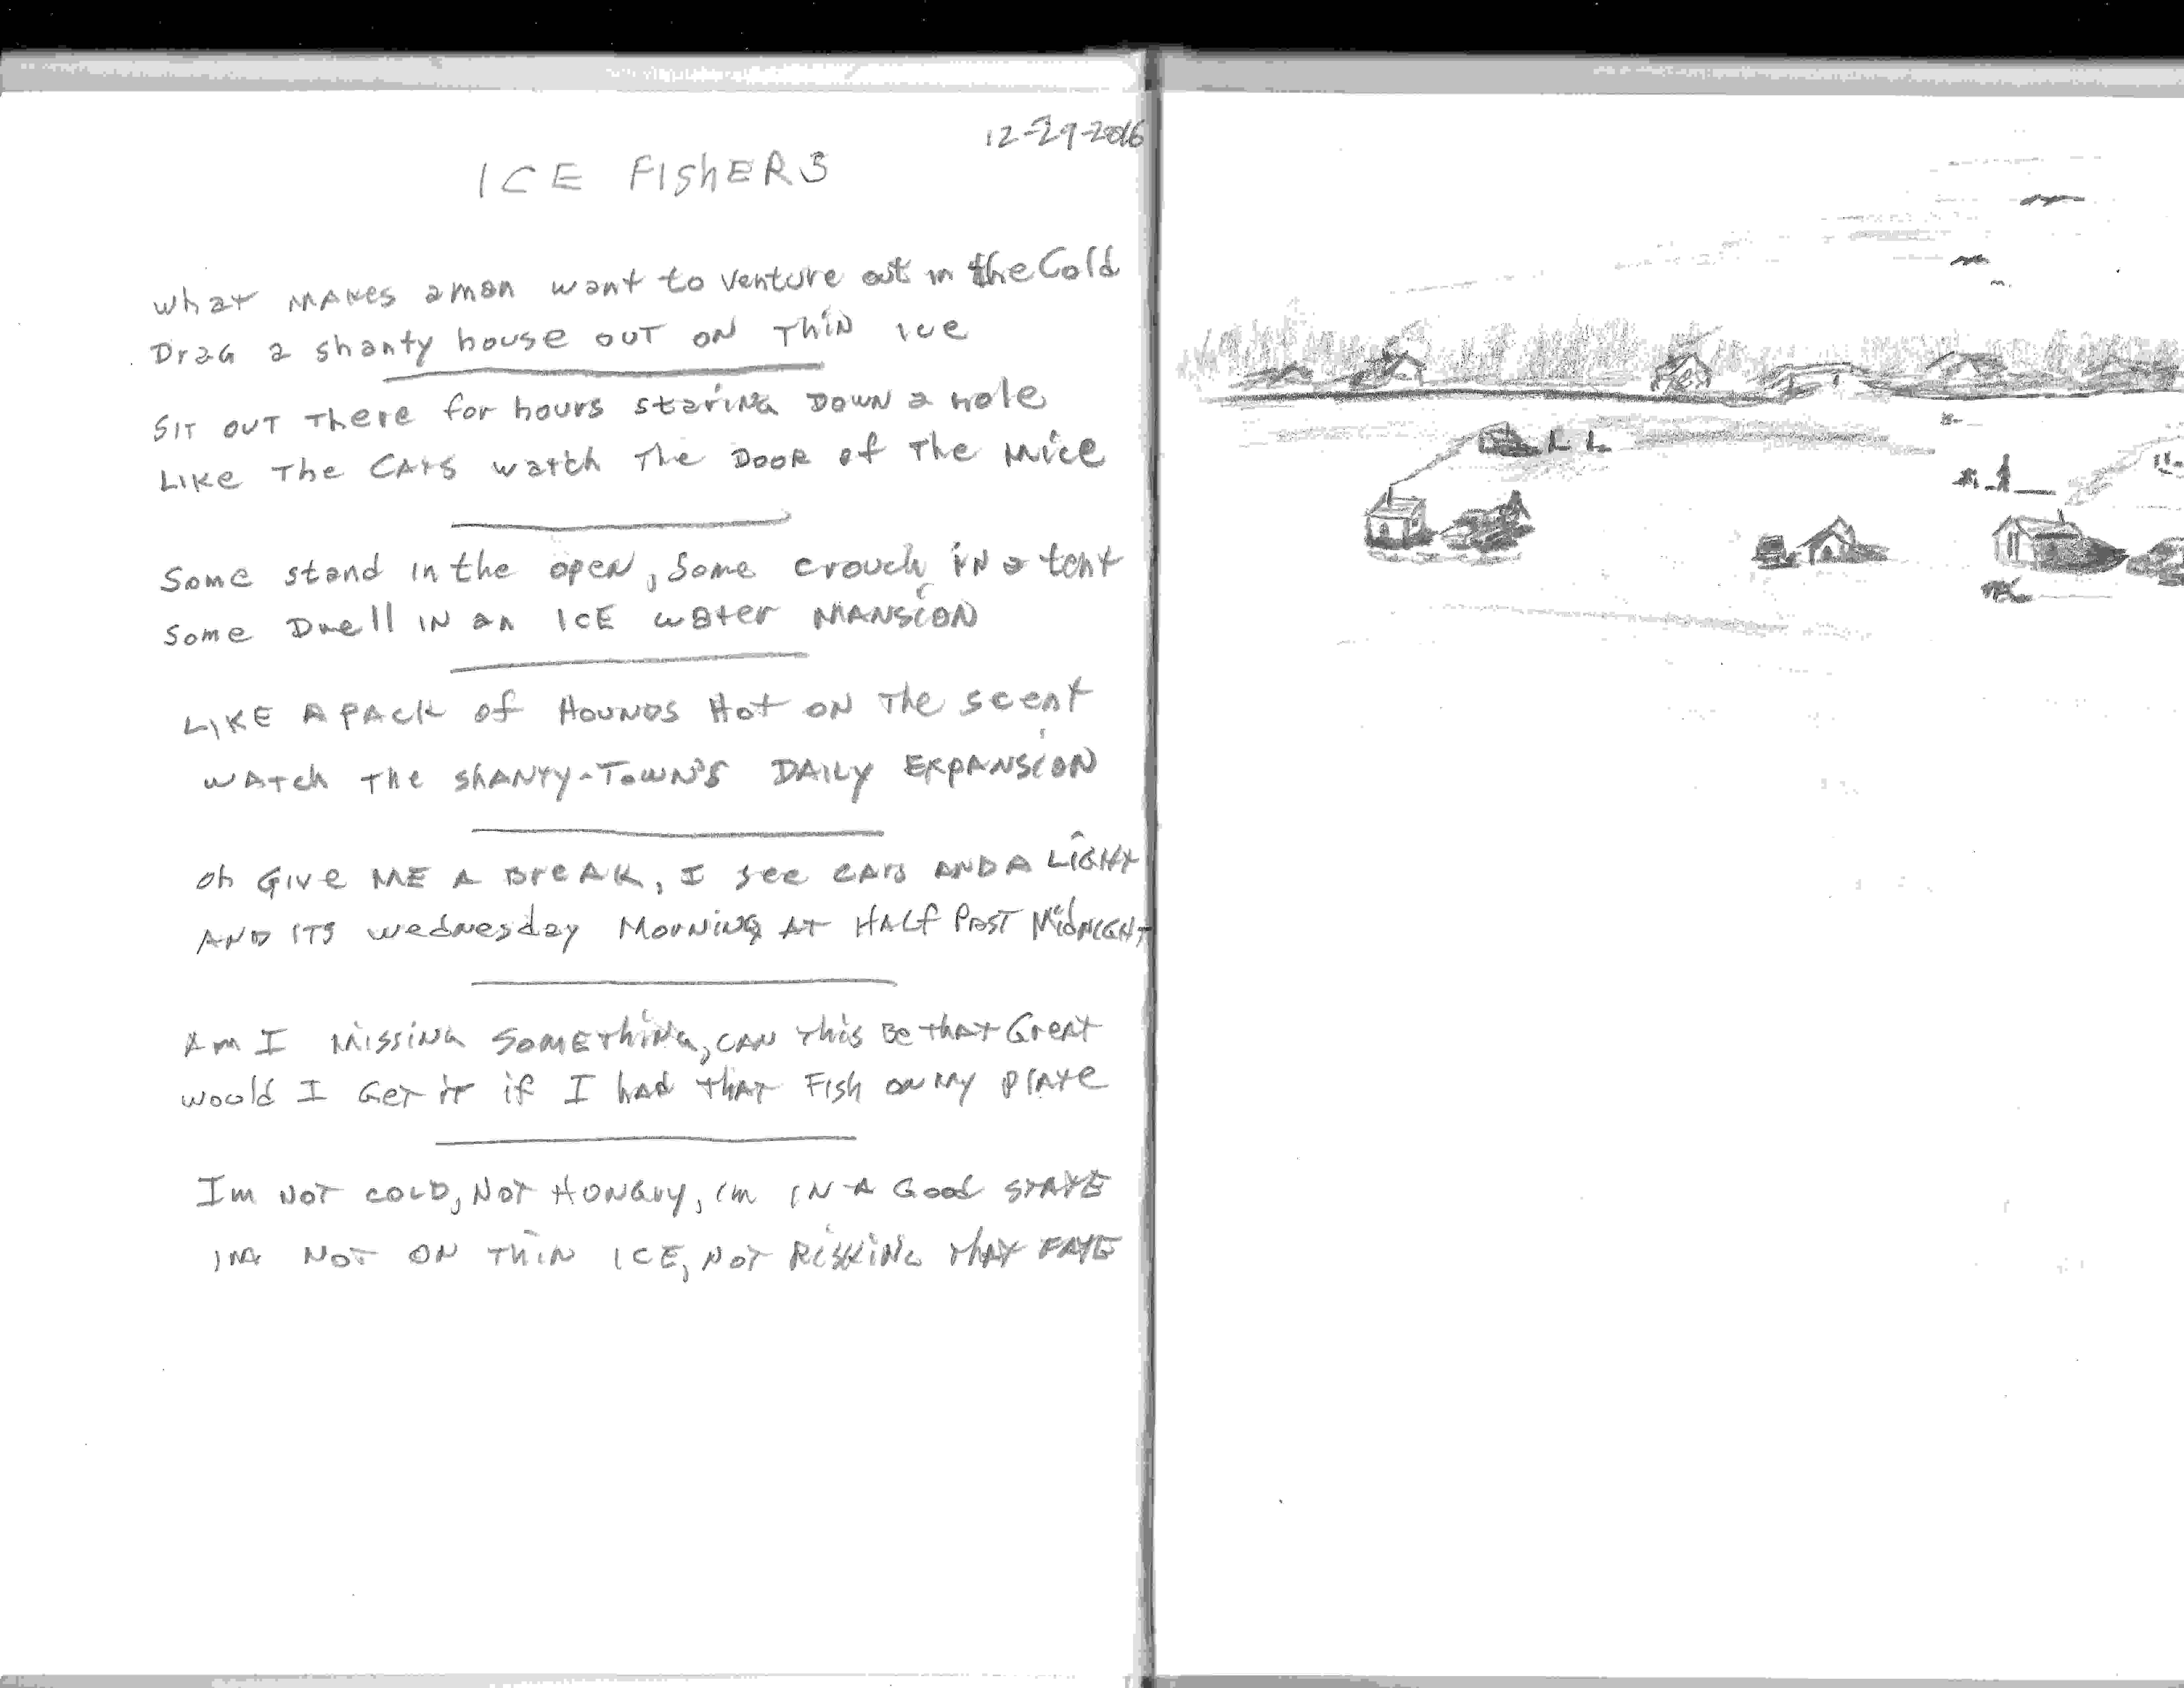 12-29-2016
ICE FISHERS
What MAKES a man want to venture out in the Cold
Drag a shanty house OUT ON Thin Ice
SIT OUT There for hours staring DOWN a hole
LIKE The CATS watch The DOOR of The Mice
Some stand in the open, Some crouch IN a tent
Some Dwell IN an ICE water MANSION
LIKE A PACK of HOUNDS Hot ON The scent
WATCH THE SHANTY-TOWN'S DAILY EXPANSION
Oh GIVE ME A BREAK, I see CARS AND A LIGHT
AND ITS Wednesday Morning AT HALF PAST MIDNIGHT
Am I Missing SOMEThING, CAN This Be that Great
Would I GET IT if I had that FISH ON MY PLATE
Im NOT COLD, NOT HONGRY, Im IN A Good STATE
IM NOT ON THIN ICE, NOT RISKING THAT FATE